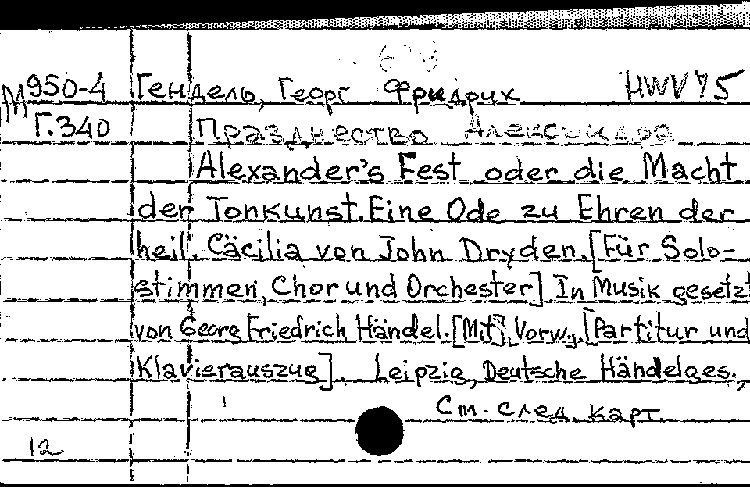 М950-4 Гендель, Георг Фридрих HWV 75
Г.340 Празднество Александра
Alexander's Fest oder die Macht
der Tonkunst. Eine Ode zu Ehren der
heil. Cäcilia von John Dryden. [Für Solo-
stimmen, Chor und Orchester] In Musik gesetzt
von Georg Friedrich Händel. [Mit] Vorw. [Partitur und
Klavierauszug]. Leipzig, Deutsche Händelges.,
См. след. карт.
12